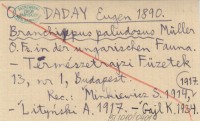 O. DADAY Eugen 1890.
Branchippus paludosus Müller
O. Fr. in der ungarischen Fauna.
- Természetrajzi Füzetek
13, nr 1, Budapest.
1917.
Rec.: "Minkiewicz S. 1914,
- "Lityński A. 1917. - Gajl K. 1934.